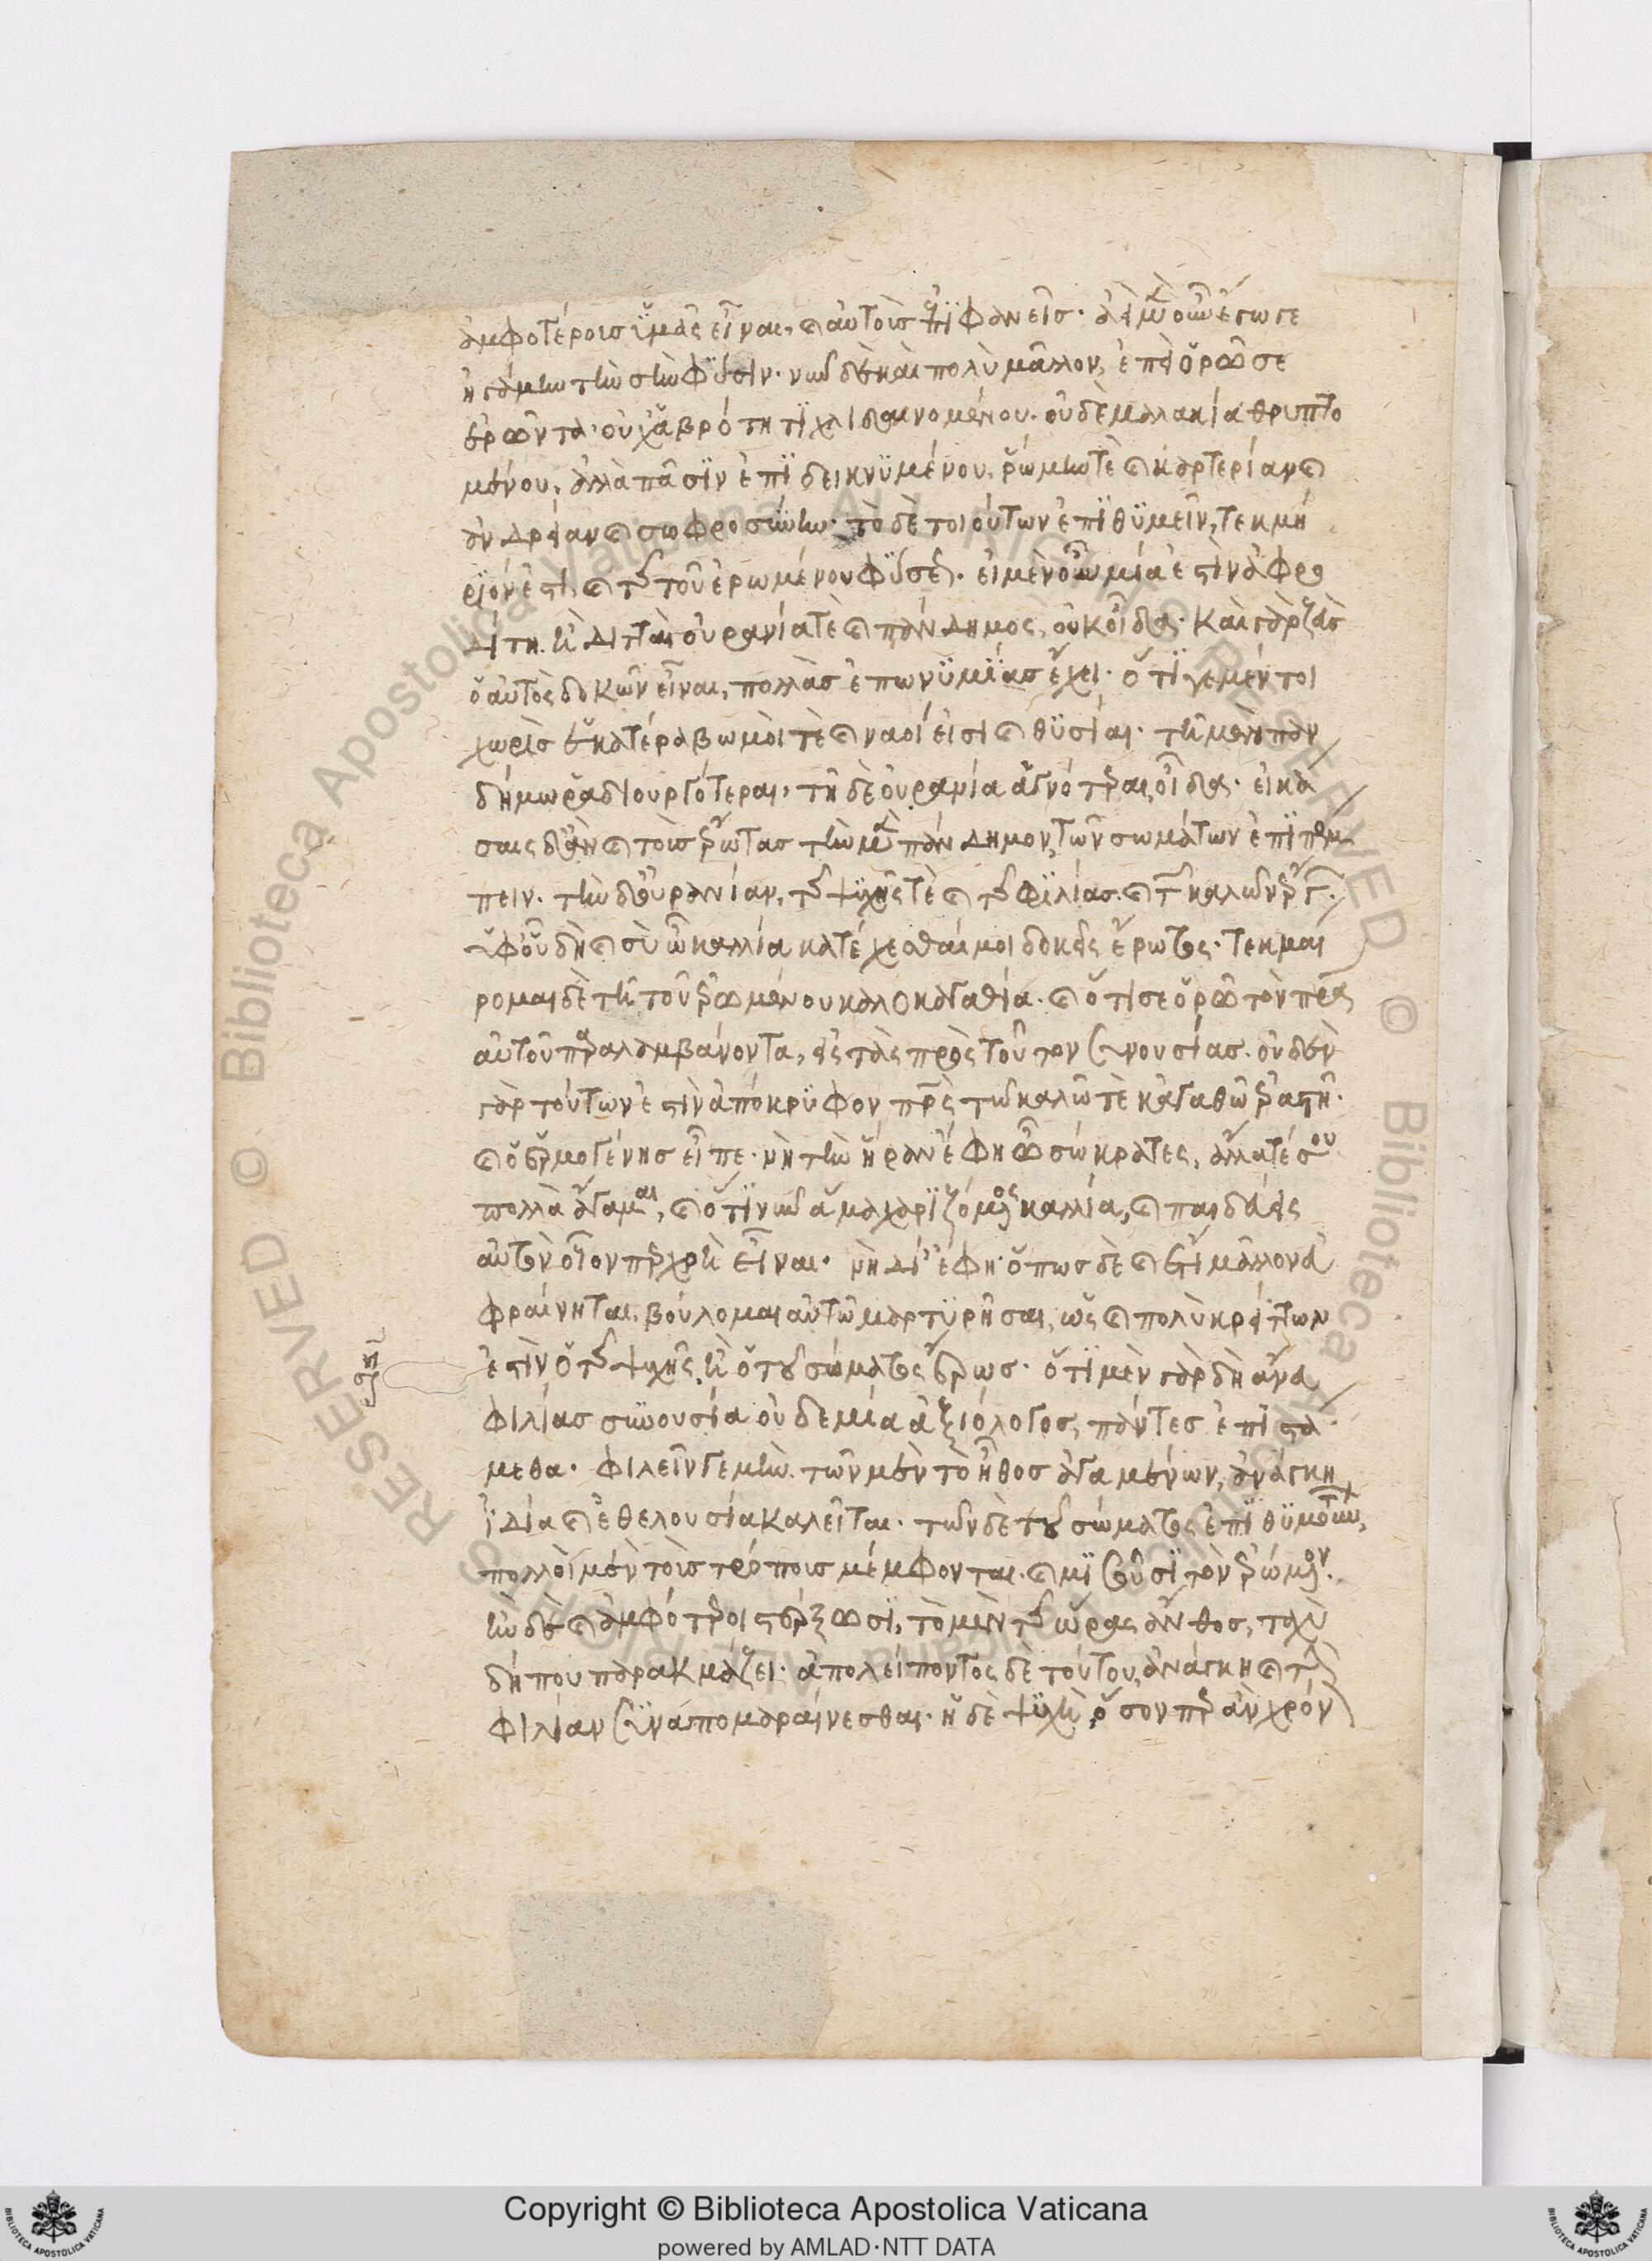 ἀμφοτέροις ὑμᾶς εἶναι, καὶ αὐτοῖς ἐπιφανεῖς. ἀεὶ μὲν οὖν ἔγωγε
ἠγάμην τὴν σὴν φύσιν. νῦν δὲ καὶ πολὺ μᾶλλον, ἐπεὶ ὁρῶ σε
ἐρῶντα. οὐχ ἁβρότητι χλιδαινομένου. οὐδὲ μαλακία θρυπτο
μένου, ἀλλὰ πᾶσιν ἐπιδεικνυμένου, ῥώμην τὲ καὶ καρτερίαν καὶ
ἀνδρείαν καὶ σωφροσύνην. τὸ δὲ τοιούτων ἐπιθυμεῖν, τεκμή
ριόν ἐστι καὶ τῆς τοῦ ἐρωμένου φύσεως. εἰ μὲν οὖν μία ἐστὶν ἀφρο
δίτη ἢ διτταὶ οὐρανία τὲ καὶ πάνδημος, οὐκ οἶδα. καὶ γὰρ ζεὺς
ὁ αὐτὸς δοκῶν εἶναι, πολλὰς ἐπωνυμίας ἔχει. ὅτι γε μέντοι
χωρὶς ἑκατέρα βωμοί τὲ καὶ ναοί εἰσι καὶ θυσίαι. τῆ μὲν παν
δήμω ῥαδιουργότεραι, τῆ δὲ οὐρανία ἁγνότεραι, οἶδα. εἰκά
σαις δ' ἂν καὶ τοὺς ἔρωτας τὴν μὲν πάνδημον, τῶν σωμάτων ἐπιπέμ
πειν. τὴν δ' οὐρανίαν, τῆς ψυχῆς τὲ καὶ τῆς φιλίας καὶ τῶν καλῶν ἔργων.
ὑφ' οὗ δὴ καὶ σὺ ὦ καλλία κατέχεσθαί μοι δοκεῖς ἔρωτος. τεκμαί
ρομαι δὲ τῆ τοῦ ἐρωμένου καλοκαγαθία. καὶ ὅτι σε ὁρῶ τὸν πατέρα
αὐτοῦ παραλαμβάνοντα, εἰς τὰς πρὸς τοῦτον συνουσίας. οὐδὲν
γὰρ τούτων ἐστὶν ἀπόκρυφον πατρὸς τῶ καλῶ τὲ κἀγαθῶ ἐραστῆ.
καὶ ὁ ἑρμογένης εἶπε. νὴ τὴν ἥραν ἔφη ὦ σώκρατες, ἄλλα τέ σου
πολλὰ ἄγαμαι, καὶ ὅτι νῦν ἅμα χαριζόμενος καλλία, καὶ παιδεύεις
αὐτὸν οἷον περ χρὴ εἶναι. νὴ δί' ἔφη. ὅπως δὲ καὶ ἔτι μᾶλλον εὐ
φραίνηται, βούλομαι αὐτῶ μαρτυρῆσαι, ὡς καὶ πολὺ κρείττων
ἐστὶν ὁ τῆς ψυχῆς ἢ ὁ τοῦ σώματος ἔρως. ὅτι μὲν γὰρ δὴ ἄνευ
φιλίας συνουσία οὐδεμία ἀξιόλογος, πάντες ἐπιστά
μεθα. φιλεῖν γε μὴν τῶν μὲν τὸ ἦθος ἀγαμένων, ἀνάγκη
ἰδία καὶ ἐθελουσία καλεῖται. τῶν δὲ τοῦ σώματος ἐπιθυμούντων,
πολλοὶ μὲν τοὺς τρόπους μέμφονται καὶ μισοῦσι τὸν ἐρώμενον.
ἢν δὲ καὶ ἀμφότεροι στέρξωσι, τὸ μὲν τῆς ὥρας ἄνθος, ταχὺ
δήπου παρακμάζει. ἀπολείποντος δὲ τούτου, ἀνάγκη καὶ τὴν
φιλίαν συναπομαραίνεσθαι. ἡ δὲ ψυχὴ, ὅσον περ ἂν χρόνον